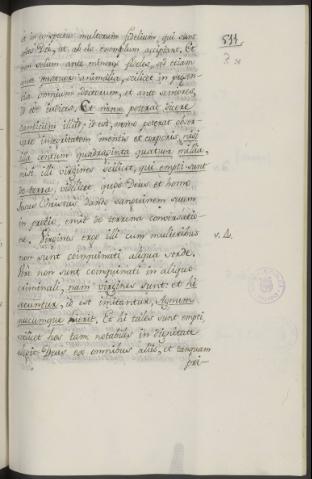 et in conspectu multorum fidelium, qui sunt
sedes Dei, ut ab eis exemplum accipiant. Et
non solum ante minores fideles, sed etiam
ante quatuor animalia, scilicet in presen-
tia omnium doctorum, et ante seniores,
id est judices. Et nemo poterat dicere
canticum illud, id est, nemo poterat obser-
vare integritatem mentis et corporis, nisi
illa centum quadraginta quatuor millia,
nisi illi virgines scilicet, qui empti sunt
de terra, videlicet quos Deus et homo
Jesus Christus dando sanguinem suum
in pretio, emit de terrena conversatio-
ne. Virgines ergo illi cum mulieribus
non sunt coinquinati aliqua sorde,
qui non sunt coinquinati in aliquo
criminali, nam virgines sunt: et hi
sequuntur, id est imitantur, Agnum
quocumque ierit. Et hi tales sunt empti,
scilicet hos tam notabiles in dignitate
elegit Deus ex omnibus aliis, et tanquam
pri-
534
v. 4.